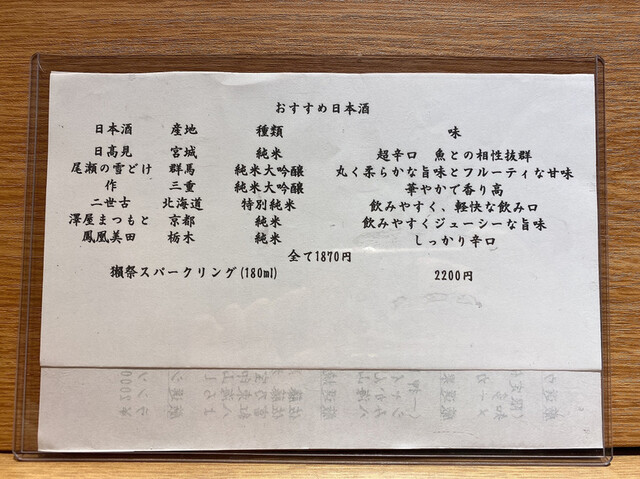 おすすめ日本酒
日本酒 産地 種類 味
日高見 宮城 純米 超辛口 魚との相性抜群
尾瀬の雪どけ 群馬 純米大吟醸 丸く柔らかな旨味とフルーティな甘味
作 三重 純米大吟醸 華やかで香り高
二世古 北海道 特別純米 飲みやすく、軽快な飲み口
澤屋まつもと 京都 純米 飲みやすくジューシーな旨味
鳳凰美田 栃木 純米 しっかり辛口
全て1870円
獺祭スパークリング(180ml) 2200円